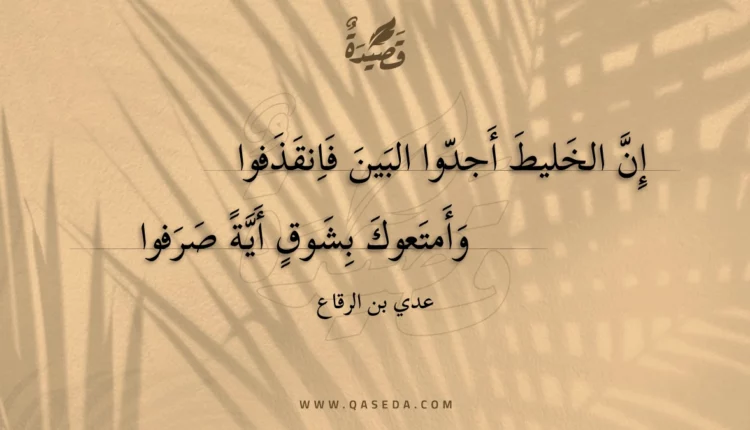 قَصِيدَةٌ
إِنَّ الخَليطَ أَجدّوا البَينَ فَاِنقَذَفوا
وَأَمتَعوكَ بِشَوقٍ أَيَّةً صَرَفوا
عدي بن الرقاع
WWW.QASEDA.COM